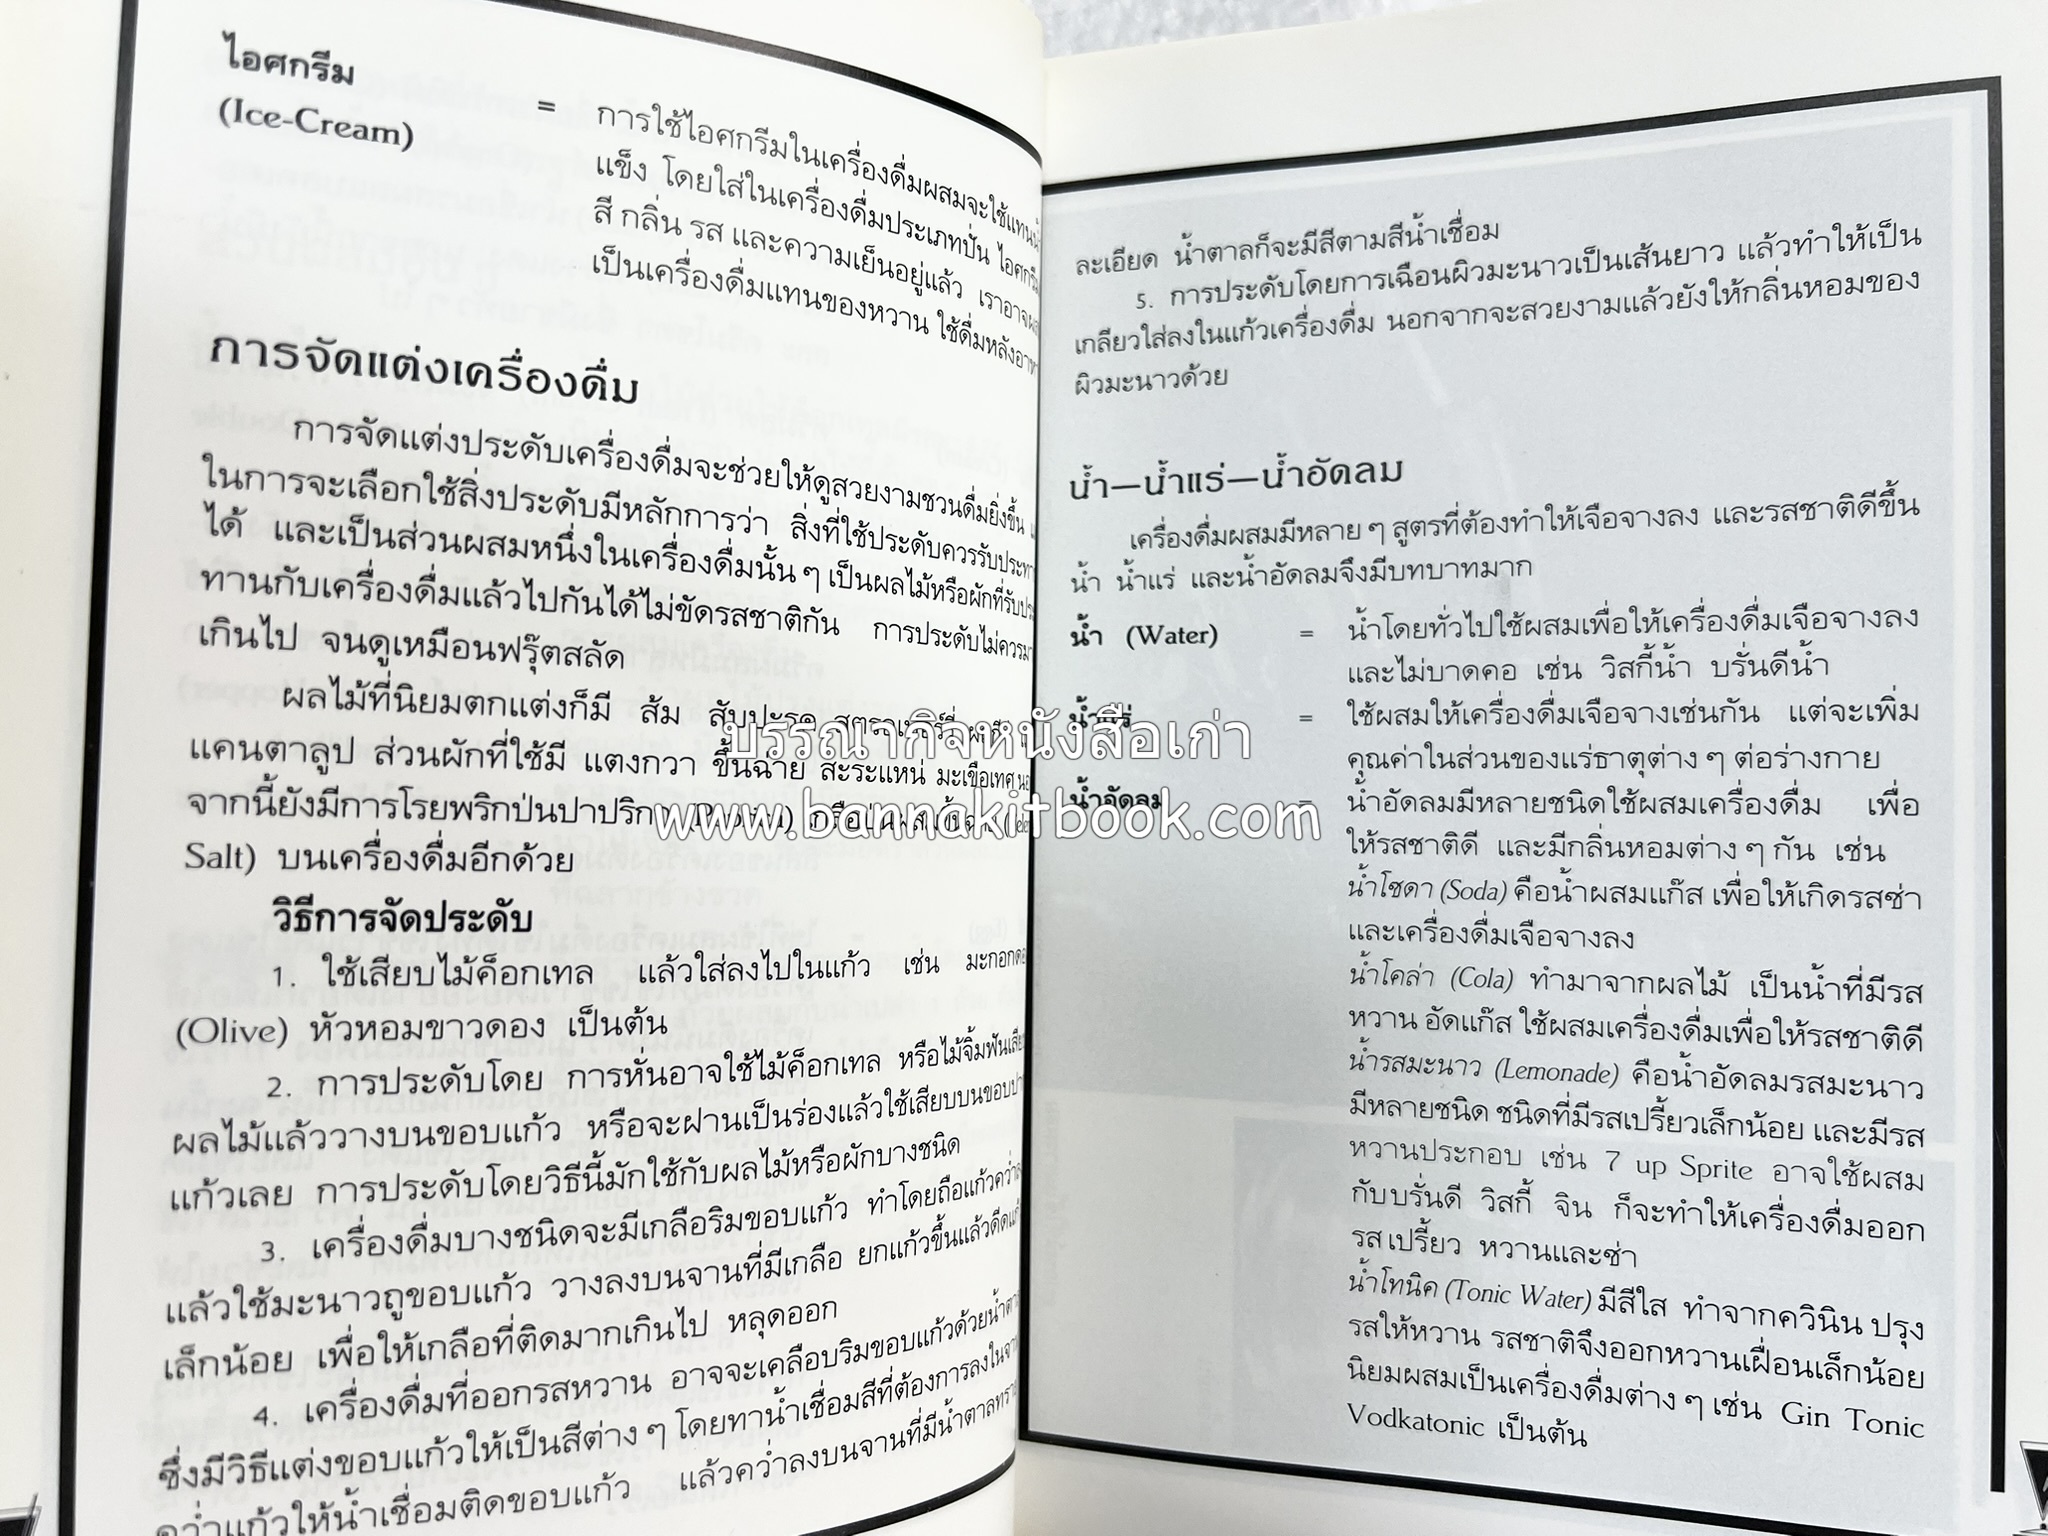 ไอศกรีม
(Ice-Cream)
= การใช้ไอศกรีมในเครื่องดื่มผสมจะใช้แทนน้ำ
แข็ง โดยใส่ในเครื่องดื่มประเภทปั่น ไอศกรีม
สี กลิ่น รส และความเย็นอยู่แล้ว เราอาจผส
เป็นเครื่องดื่มแทนของหวาน ใช้ดื่มหลังอาหา
การจัดแต่งเครื่องดื่ม
การจัดแต่งประดับเครื่องดื่มจะช่วยให้ดูสวยงามชวนดื่มยิ่งขึ้น
ในการจะเลือกใช้สิ่งประดับมีหลักการว่า สิ่งที่ใช้ประดับควรรับประทา
ได้ และเป็นส่วนผสมหนึ่งในเครื่องดื่มนั้น ๆ เป็นผลไม้หรือผักที่รับประ
ทานกับเครื่องดื่มแล้วไปกันได้ไม่ขัดรสชาติกัน การประดับไม่ควรมา
เกินไป จนดูเหมือนฟรุ๊ตสลัด
ผลไม้ที่นิยมตกแต่งก็มี ส้ม สับปะรด สตรอเบอร์รี่
แคนตาลูป ส่วนผักที่ใช้มี แตงกวา ขึ้นฉ่าย สะระแหน่ มะเขือเทศ นอ
จากนี้ยังมีการโรยพริกป่นปาปริกา
Salt) บนเครื่องดื่มอีกด้วย
วิธีการจัดประดับ
1. ใช้เสียบไม้ค็อกเทล แล้วใส่ลงไปในแก้ว เช่น มะกอกดอ
(Olive) หัวหอมขาวดอง เป็นต้น
2. การประดับโดย การหั่นอาจใช้ไม้ค็อกเทล หรือไม้จิ้มฟันเสีย
ผลไม้แล้ววางบนขอบแก้ว หรือจะฝานเป็นร่องแล้วใช้เสียบบนขอบปา
แก้วเลย การประดับโดยวิธีนี้มักใช้กับผลไม้หรือผักบางชนิด
3. เครื่องดื่มบางชนิดจะมีเกลือริมขอบแก้ว ทำโดยถือแก้วคว่ำล
แล้วใช้มะนาวถูขอบแก้ว วางลงบนจานที่มีเกลือ ยกแก้วขึ้นแล้วดีดแก้
เล็กน้อย เพื่อให้เกลือที่ติดมากเกินไป หลุดออก
4. เครื่องดื่มที่ออกรสหวาน อาจจะเคลือบริมขอบแก้วด้วยน้ำตา
ซึ่งมีวิธีแต่งขอบแก้วให้เป็นสีต่าง ๆ โดยทาน้ำเชื่อมสีที่ต้องการลงในจา
คว่ำแก้วให้น้ำเชื่อมติดขอบแก้ว แล้วคว่ำลงบนจานที่มีน้ำตาลทรา
ละเอียด น้ำตาลก็จะมีสีตามสีน้ำเชื่อม
5. การประดับโดยการเฉือนผิวมะนาวเป็นเส้นยาว แล้วทำให้เป็น
เกลียวใส่ลงในแก้วเครื่องดื่ม นอกจากจะสวยงามแล้วยังให้กลิ่นหอมของ
ผิวมะนาวด้วย
น้ำ—น้ำแร่—น้ำอัดลม
เครื่องดื่มผสมมีหลาย ๆ สูตรที่ต้องทำให้เจือจางลง และรสชาติดีขึ้น
น้ำ น้ำแร่ และน้ำอัดลมจึงมีบทบาทมาก
น้ำ (Water) = น้ำโดยทั่วไปใช้ผสมเพื่อให้เครื่องดื่มเจือจางลง
และไม่บาดคอ เช่น วิสกี้น้ำ บรั่นดีน้ำ
น้ำแร่ = ใช้ผสมให้เครื่องดื่มเจือจางเช่นกัน แต่จะเพิ่ม
คุณค่าในส่วนของแร่ธาตุต่าง ๆ ต่อร่างกาย
น้ำอัดลม = น้ำอัดลมมีหลายชนิดใช้ผสมเครื่องดื่ม เพื่อ
ให้รสชาติดี และมีกลิ่นหอมต่าง ๆ กัน เช่น
น้ำโซดา (Soda) คือน้ำผสมแก๊ส เพื่อให้เกิดรสซ่า
และเครื่องดื่มเจือจางลง
น้ำโคล่า (Cola) ทำมาจากผลไม้ เป็นน้ำที่มีรส
หวาน อัดแก๊ส ใช้ผสมเครื่องดื่มเพื่อให้รสชาติดี
น้ำรสมะนาว (Lemonade) คือน้ำอัดลมรสมะนาว
มีหลายชนิด ชนิดที่มีรสเปรี้ยวเล็กน้อย และมีรส
หวานประกอบ เช่น 7 up Sprite อาจใช้ผสม
กับบรั่นดี วิสกี้ จิน ก็จะทำให้เครื่องดื่มออก
รสเปรี้ยว หวานและซ่า
น้ำโทนิค (Tonic Water) มีสีใส ทำจากควินิน ปรุง
รสให้หวาน รสชาติจึงออกหวานเฝื่อนเล็กน้อย
นิยมผสมเป็นเครื่องดื่มต่าง ๆ เช่น Gin Tonic
Vodkatonic เป็นต้น
บรรณากิจหนังสือเก่า
www.bannakitbook.com